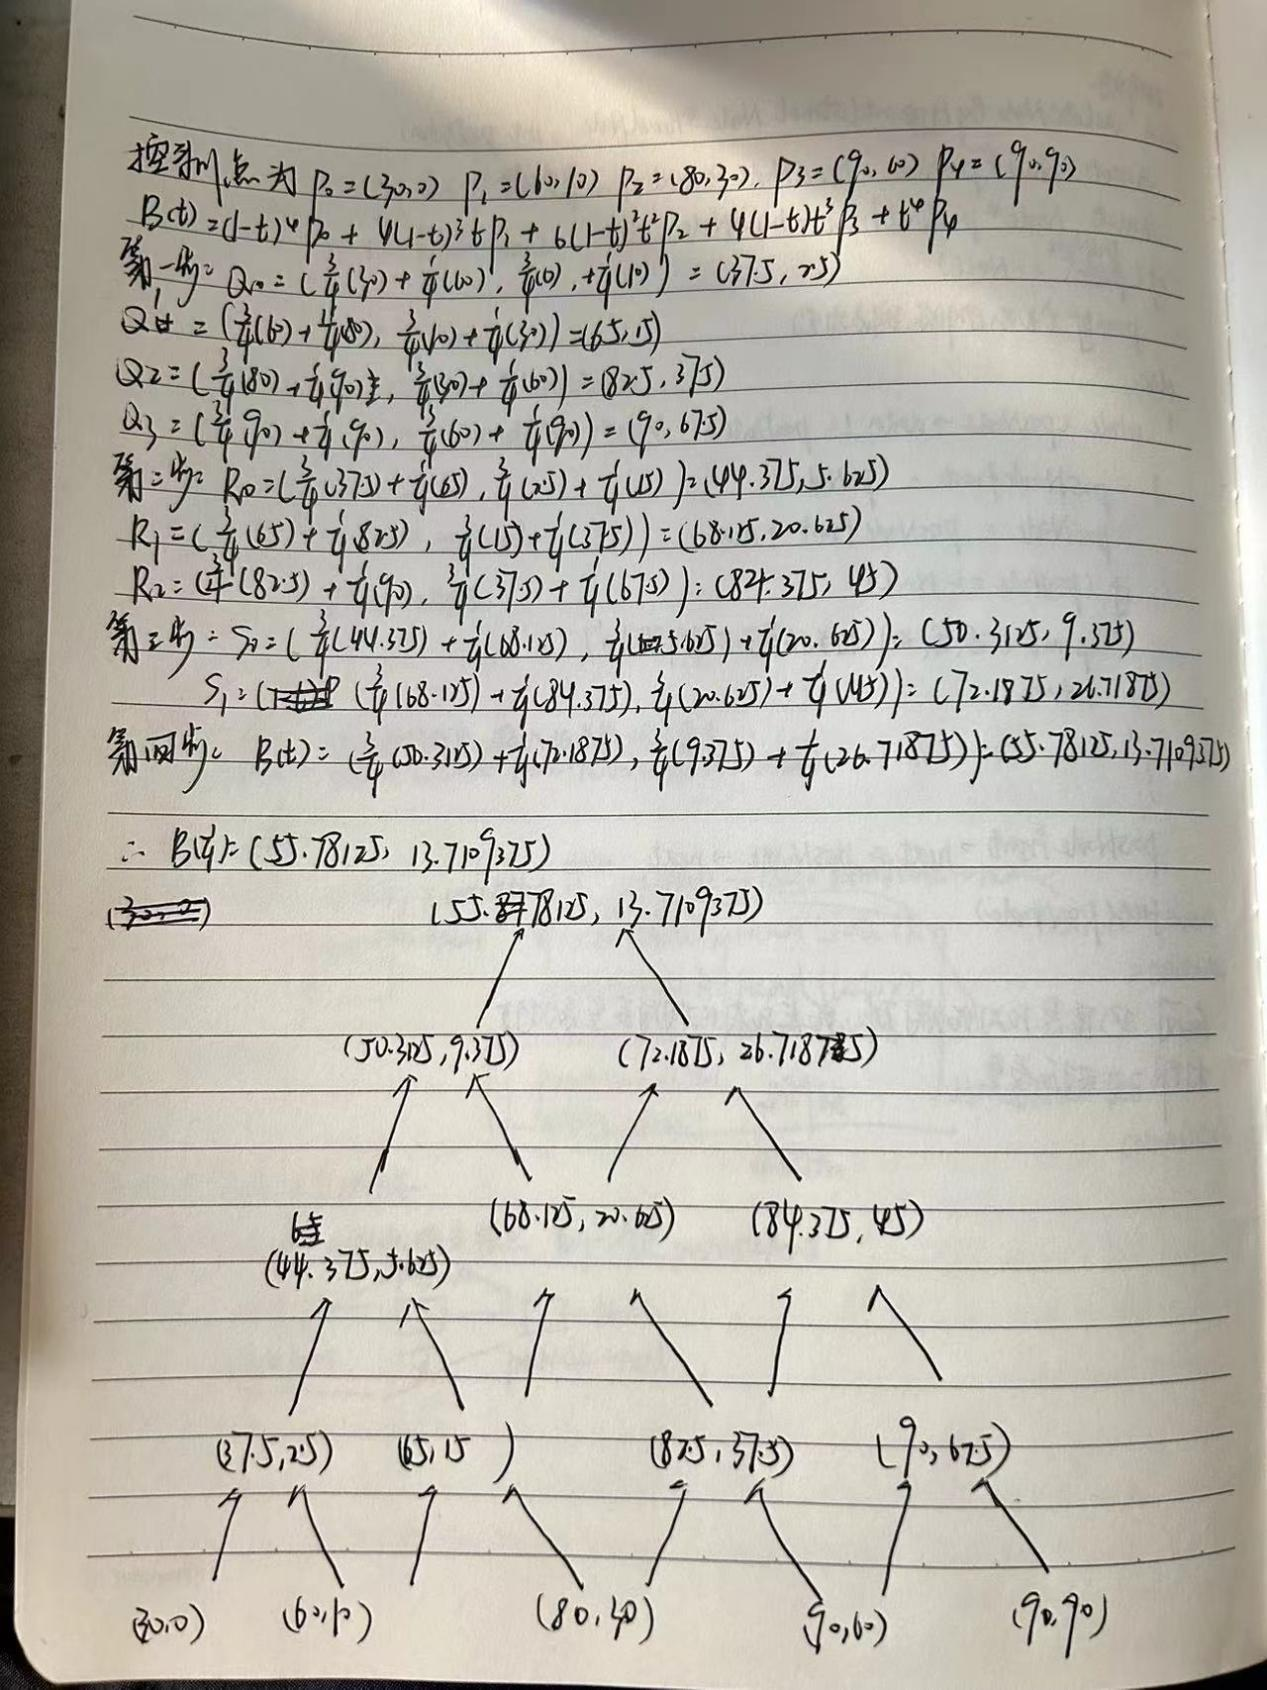 控制点为 P₀=(30,0) P₁=(60,10) P₂=(80,30), P₃=(90,60) P₄=(90,90)
B(t)=(1-t)⁴P₀ + 4(1-t)³tP₁ + 6(1-t)²t²P₂ + 4(1-t)t³P₃ + t⁴P₄
第一步: Q₀ = (3/4(30)+1/4(60), 3/4(0),+1/4(10)) = (37.5, 2.5)
Q₁ = (3/4(60)+1/4(80), 3/4(10)+1/4(30))=(65,15)
Q₂=(3/4(80)+1/4(90), 3/4(30)+1/4(60))=(82.5,37.5)
Q₃=(3/4(90)+1/4(90), 3/4(60)+1/4(90))=(90,67.5)
第二步: R₀=(3/4(37.5)+1/4(65),3/4(2.5)+1/4(15))=(44.375,5.625)
R₁=(3/4(65)+1/4(82.5), 3/4(15)+1/4(37.5))=(68.125,20.625)
R₂=(3/4(82.5)+1/4(90), 3/4(37.5)+1/4(67.5))=(84.375,45)
第三步: S₀=(3/4(44.375)+1/4(68.125), 3/4(5.625)+1/4(20.625))=(50.3125,9.375)
S₁=(3/4(68.125)+1/4(84.375),3/4(20.625)+1/4(45))=(72.1875,26.71875)
第四步: B(t)=(3/4(50.3125)+1/4(72.1875),3/4(9.375)+1/4(26.71875))=(55.78125,13.7109375)
∴ B(1/4)=(55.78125, 13.7109375)
(55.78125, 13.7109375)
(50.3125,9.375) (72.1875, 26.71875)
(68.125,20.625) (84.375,45)
(44.375,5.625)
(37.5,2.5) (65,15) (82.5,37.5) (90,67.5)
(30,0) (60,10) (80,30) (90,60) (90,90)